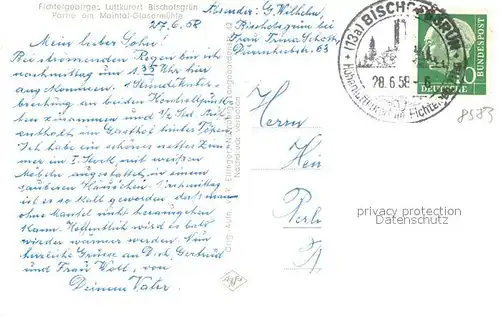 Fichtelgebirge, Luftkurort Bischofsgrün
Partie am Maintal-Glasermühle
27.6.58
Absender: G. Wilhelm,
Bischofsgrün bei
Frau Trina Schott
Dürnhofstr. 63
Mein lieber Sohn!
Bei strömenden Regen bin ich
nachmittag um 1 35 Uhr hier
angekommen. 1 Stunde Unter-
brechung an beiden
zusammen und ½ Std
enthalt im Gasthof
Ich habe ein schönes nettes Zim-
mer im I. Stock, mit weißen
Möbeln ausgestattet in einem
sauberen Häuschen. Vormittag
ist es so kalt geworden, daß man
ohne Mantel nicht herausgehen
kann. Hoffentlich wird es bald
wieder wärmer werden. Nun
herzliche Grüße an Dich, Gertrud
und Frau Woll, von
Deinem Vater.
Nachdruck verboten
Agfa
Herrn
(13a) BISCHOFSGRÜN
28.6.58-6
Höhenluftkurort im Fichtelg
DEUTSCHE
BUNDESPOST
10
8583
privacy protection
Datenschutz